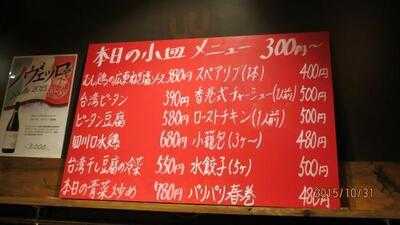 本日の小皿メニュー 300円〜
むし鶏の広東ねぎ塩ソース 380円 スペアリブ(1本) 400円
台湾ピータン 390円 香港式チャーシュー(1人前) 500円
ピータン豆腐 580円 ローストチキン(1人前) 500円
四川口水鶏 680円 小籠包(3ヶ〜) 480円
台湾干し豆腐の冷菜 550円 水餃子(5ヶ) 500円
本日の青菜炒め 780円 パリパリ春巻 480円
2015/10/31